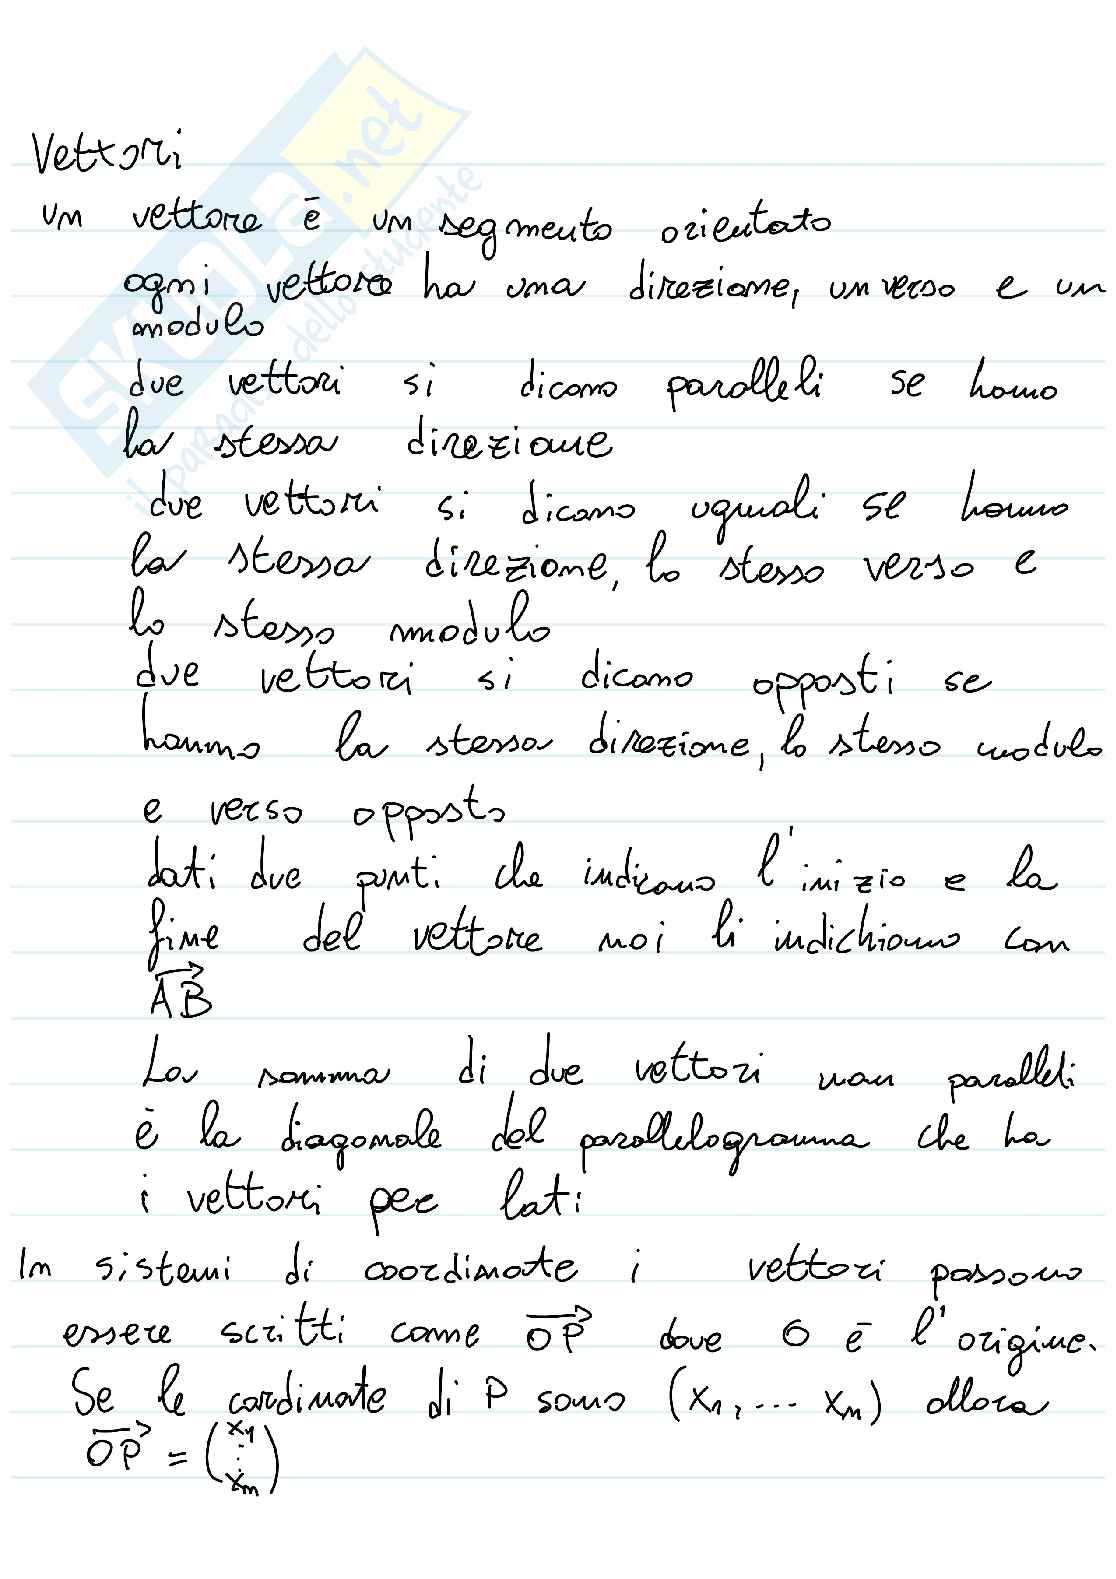 Vettori
un vettore è un segmento orientato
ogni vettore ha una direzione, un verso e un
modulo
due vettori si dicono paralleli se hanno
la stessa direzione
due vettori si dicono uguali se hanno
la stessa direzione, lo stesso verso e
lo stesso modulo
due vettori si dicono opposti se
hanno la stessa direzione, lo stesso modulo
e verso opposto
dati due punti che indicano l'inizio e la
fine del vettore noi li indichiamo con
\overrightarrow{AB}
La somma di due vettori non paralleli
è la diagonale del parallelogramma che ha
i vettori per lati
In sistemi di coordinate i vettori possono
essere scritti come \overrightarrow{OP} dove O è l'origine.
Se le cordinate di P sono (x₁, ... xₙ) allora
\overrightarrow{OP} = (x₁ ⋮ xₙ)
SKUOLA.net
il paradiso dello studente